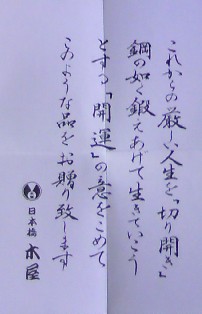 これからの厳しい人生を「切り開き」
鋼の如く鍛えあげて生きていこう
とする「開運」の意をこめて
このような品をお贈り致します
日本橋 木屋